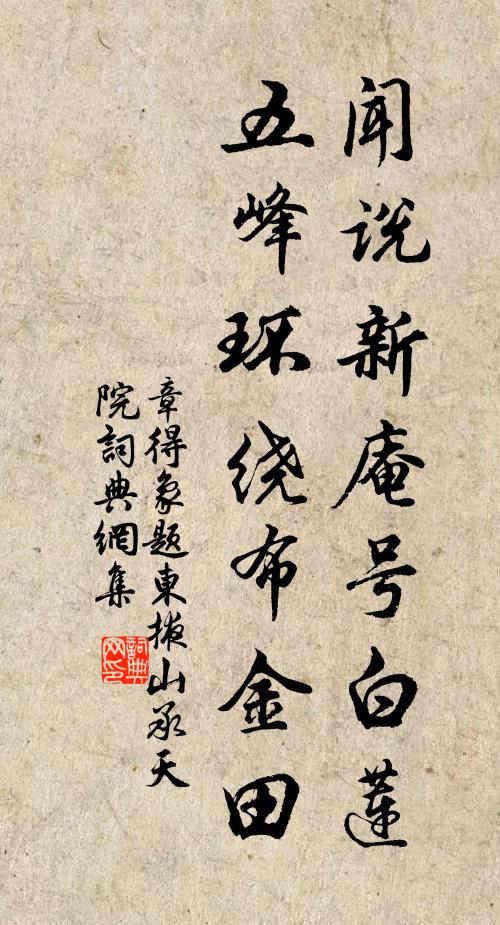 闻说新庵号白莲
五峰环绕布金田
章得象题東掖山承天
院詞典網集
詞典网印